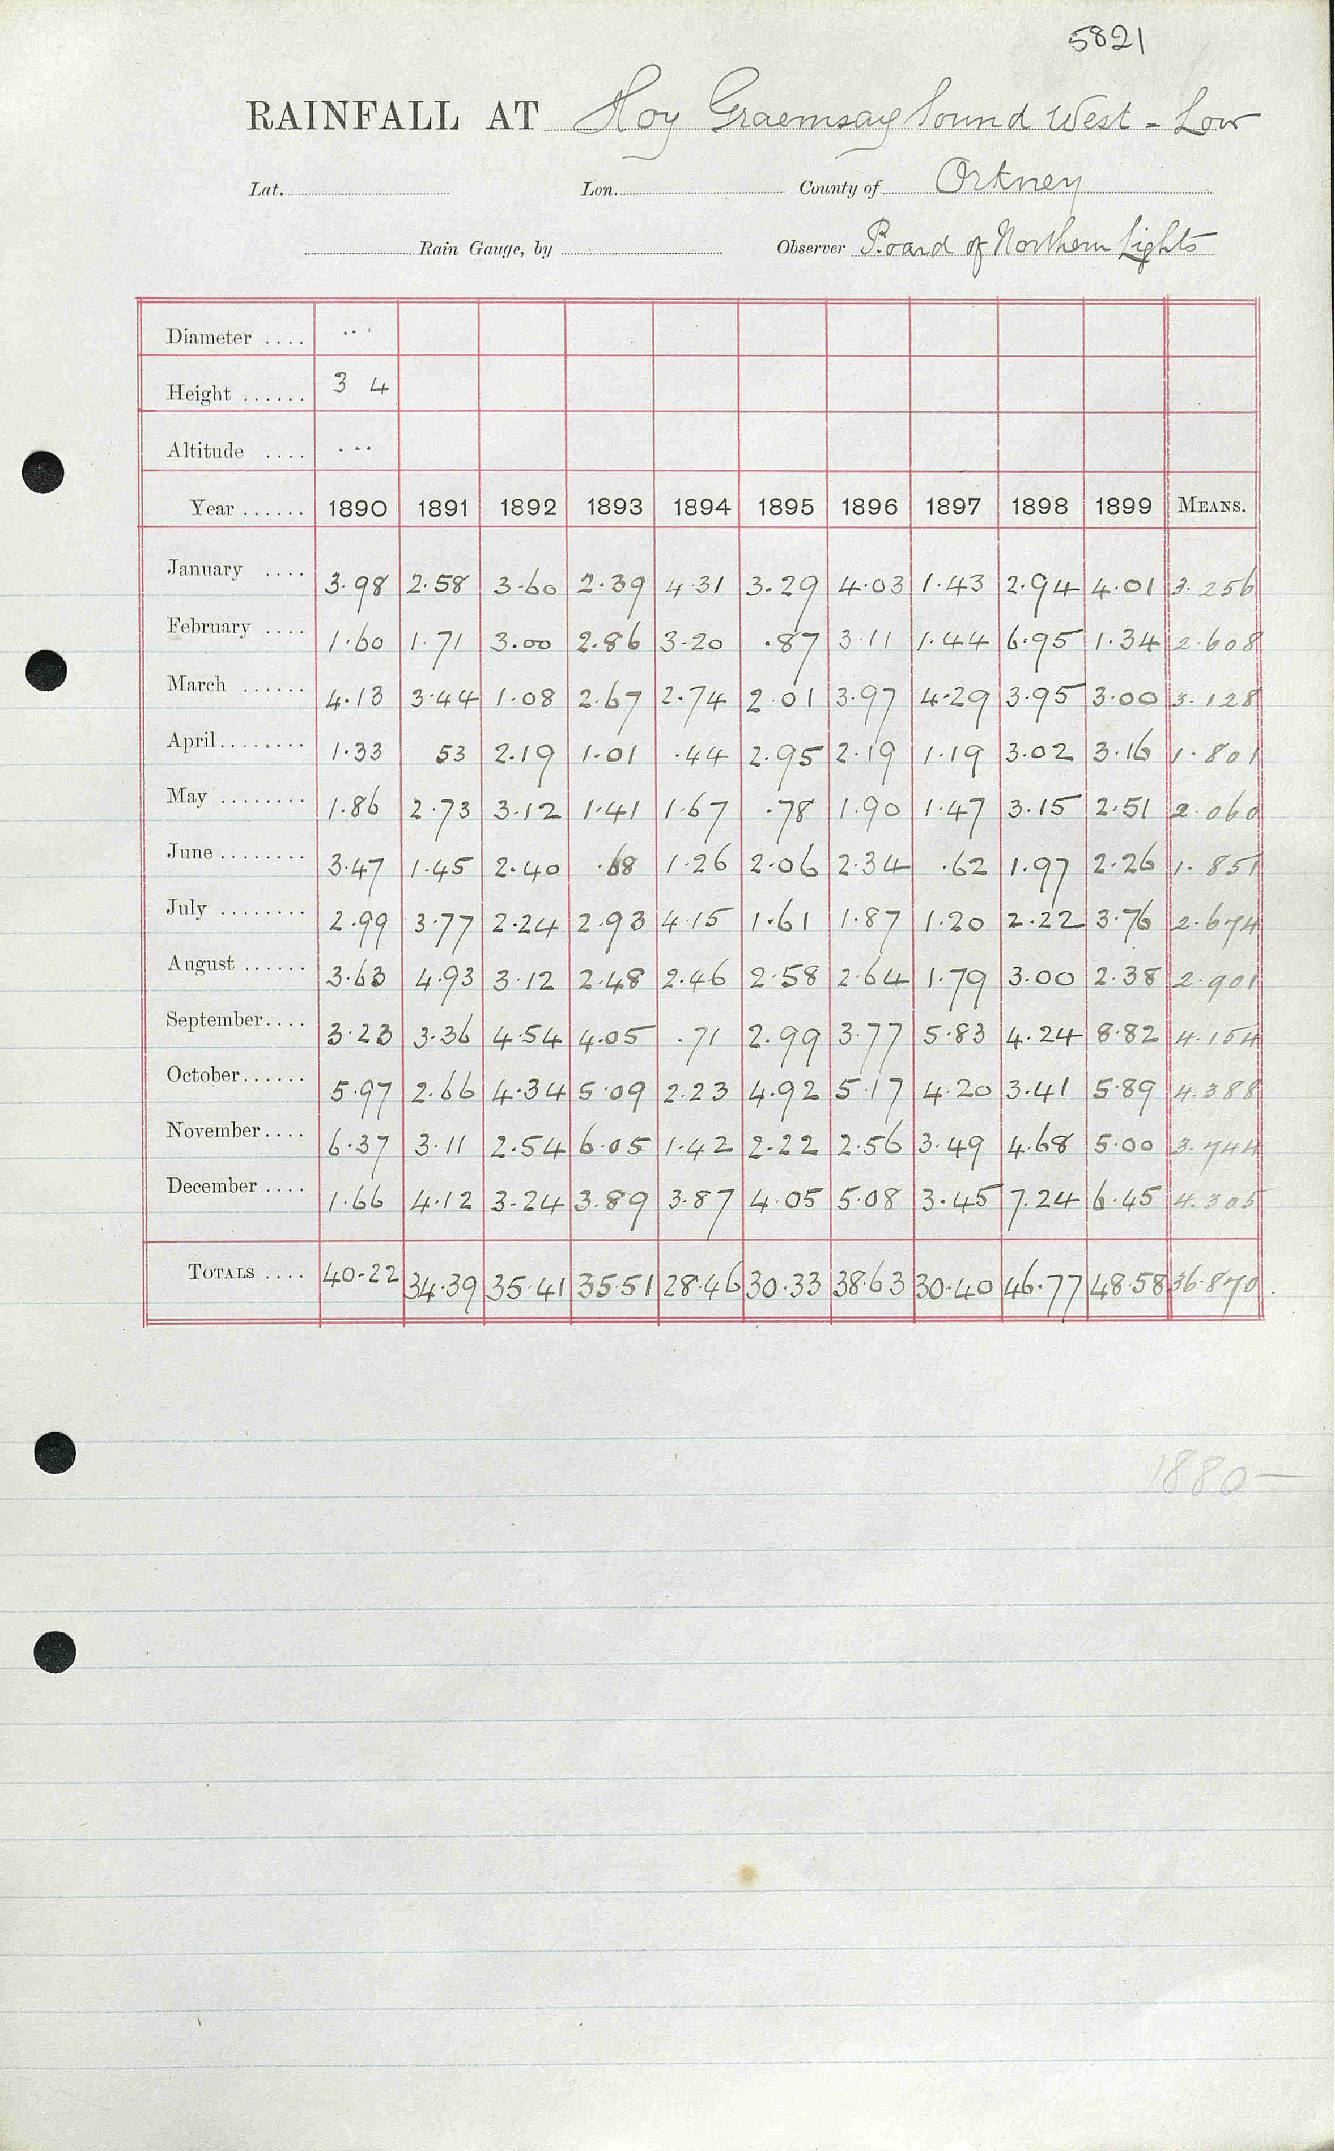 5821
RAINFALL AT Hoy Graemsay Sound West - Low
Lat. Lon. County of Orkney
Rain Gauge, by Observer Board of Northern Lights
Diameter .... ...
Height ...... 3 4
Altitude .... ...
Year ...... 1890 1891 1892 1893 1894 1895 1896 1897 1898 1899 MEANS.
January .... 3.98 2.58 3.60 2.39 4.31 3.29 4.03 1.43 2.94 4.01 3.256
February .... 1.60 1.71 3.00 2.86 3.20 .87 3.11 1.44 6.95 1.34 2.608
March ...... 4.13 3.44 1.08 2.67 2.74 2.01 3.97 4.29 3.95 3.00 3.128
April........ 1.33 53 2.19 1.01 .44 2.95 2.19 1.19 3.02 3.16 1.801
May ........ 1.86 2.73 3.12 1.41 1.67 .78 1.90 1.47 3.15 2.51 2.060
June ........ 3.47 1.45 2.40 .68 1.26 2.06 2.34 .62 1.97 2.26 1.851
July ........ 2.99 3.77 2.24 2.93 4.15 1.61 1.87 1.20 2.22 3.76 2.674
August ...... 3.63 4.93 3.12 2.48 2.46 2.58 2.64 1.79 3.00 2.38 2.901
September.... 3.23 3.36 4.54 4.05 .71 2.99 3.77 5.83 4.24 8.82 4.154
October...... 5.97 2.66 4.34 5.09 2.23 4.92 5.17 4.20 3.41 5.89 4.388
November.... 6.37 3.11 2.54 6.05 1.42 2.22 2.56 3.49 4.68 5.00 3.744
December .... 1.66 4.12 3.24 3.89 3.87 4.05 5.08 3.45 7.24 6.45 4.305
TOTALS .... 40.22 34.39 35.41 35.51 28.46 30.33 38.63 30.40 46.77 48.58 36.870
1880—